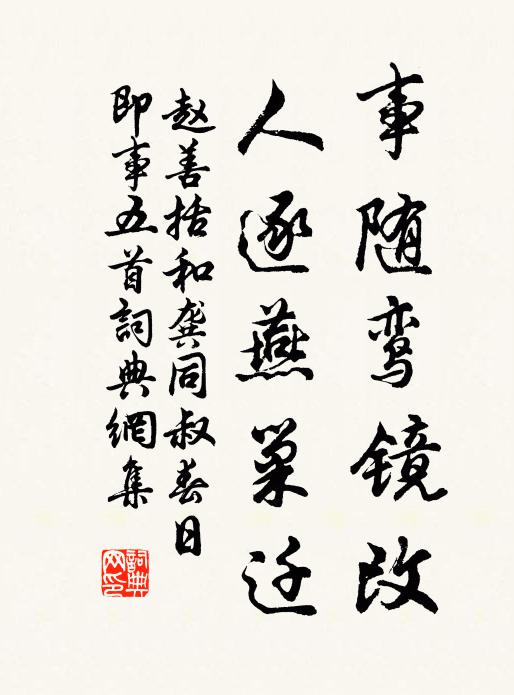 事随鸾镜改
人逐燕巢迁
赵善括和龚同叔春日
即事五首詞典網集
詞典网印